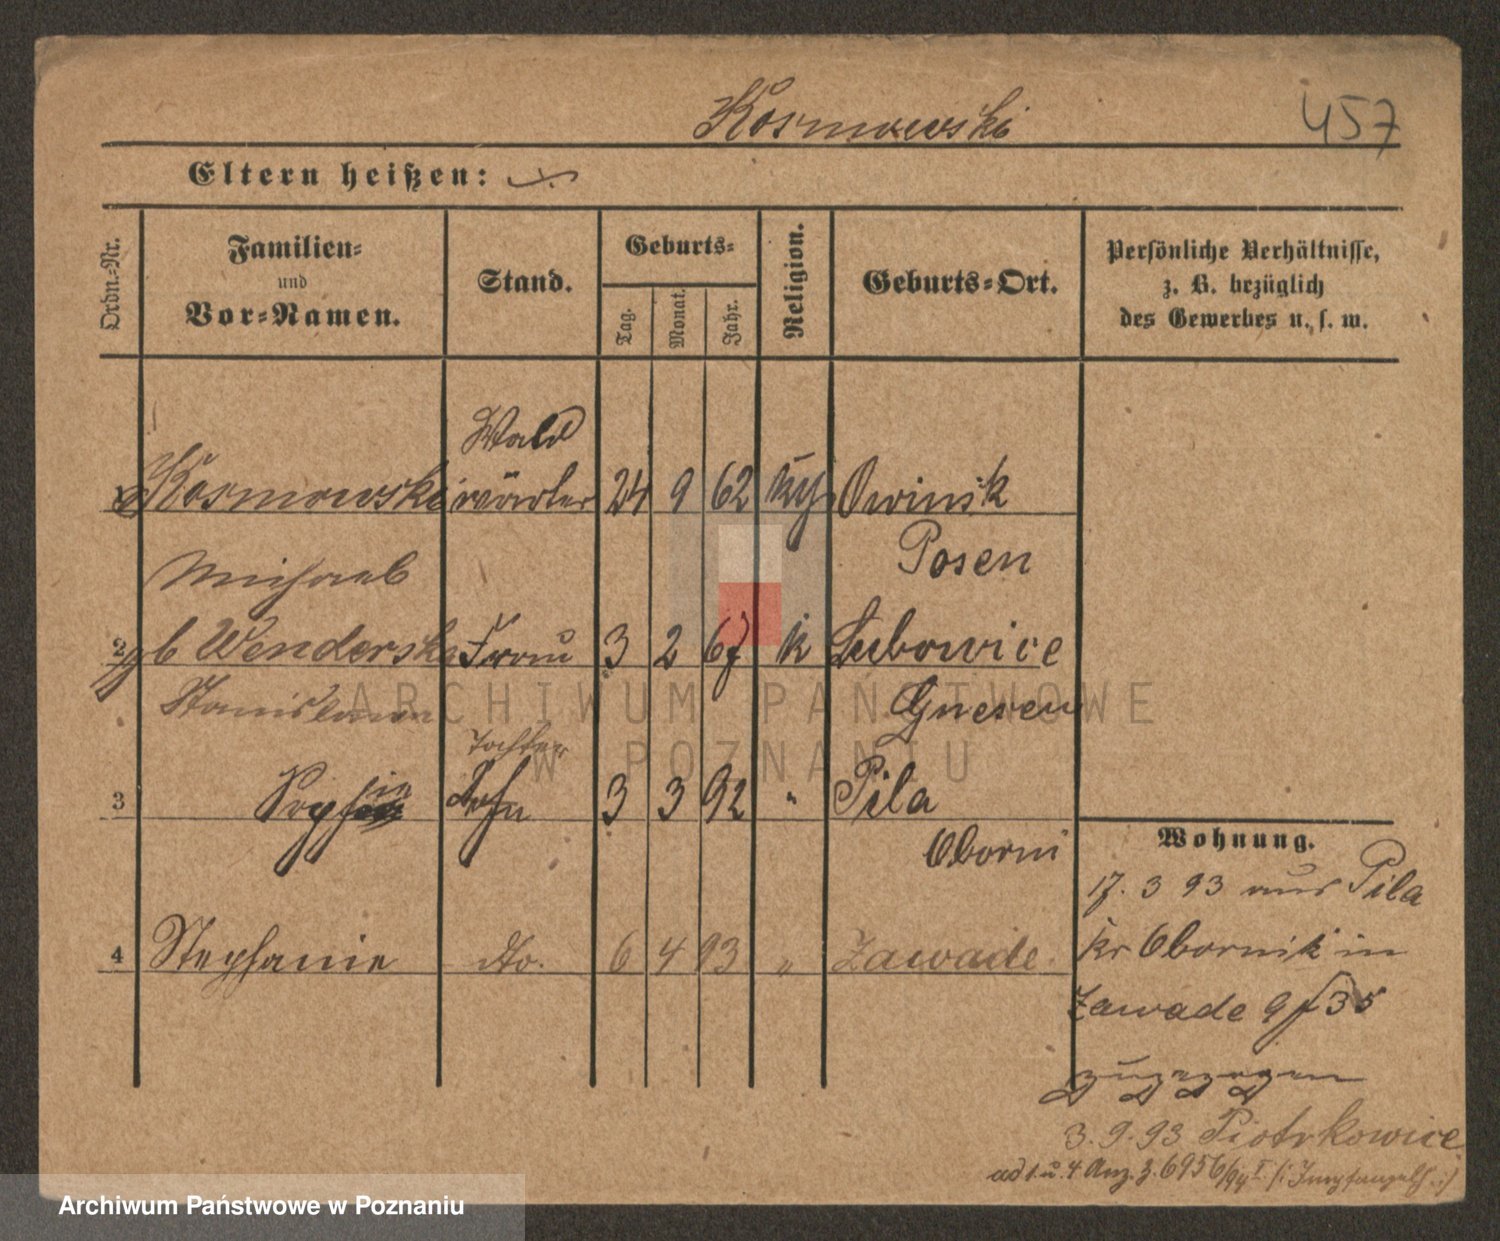 Kosmowski 457
Eltern heißen:
Ordn.-Nr. Familien- und Vor-Namen. Stand. Geburts- Tag. Monat. Jahr. Religion. Geburts-Ort. Persönliche Verhältnisse, z. B. bezüglich des Gewerbes u. s. w.
Wald
1 Kosmowski wärter 24 9 62 kth Owinsk
Michael Posen
2 gb Wenderska Frau 3 2 67 k Lubowice
Stanislawa Gnesen
Tochter
3 Sophie Sohn 3 3 92 " Pila
Oborni
Wohnung.
17. 3 93 aus Pila
4 Stephanie do. 6 4 93 " Zawade
Kr Obornik in
Zawade 9/35
zugezogen
3. 9. 93 Piotrkowice
ad 1. u. 4 Anz. z. 6956/94 I.
ARCHIWUM PAŃSTWOWE
W POZNANIU
Archiwum Państwowe w Poznaniu